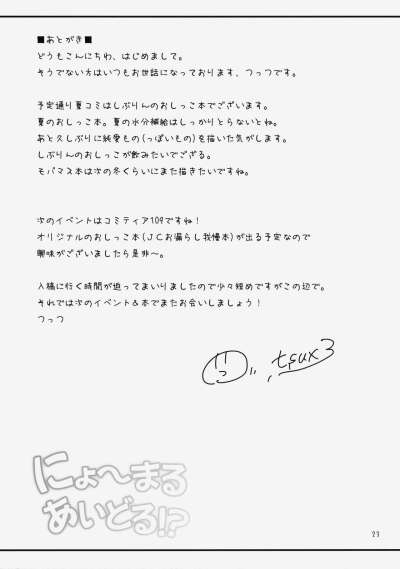 ■あとがき■
どうもこんにちわ、はじめまして。
そうでない方はいつもお世話になっております、つっつです。
予定通り夏コミはしぶりんのおしっこ本でございます。
夏のおしっこ本。夏の水分補給はしっかりとらないとね。
あと久しぶりに純愛もの(っぽいもの)を描いた気がします。
しぶりんのおしっこが飲みたいでござる。
モバマス本は次の冬くらいにまた描きたいですね。
次のイベントはコミティア109ですね！
オリジナルのおしっこ本(JCお漏らし我慢本)が出る予定なので
興味がございましたら是非〜。
入稿に行く時間が迫ってまいりましたので少々短めですがこの辺で。
それでは次のイベント&本でまたお会いしましょう！
つっつ
tsux3
にょ〜まる
あいどる!?
23